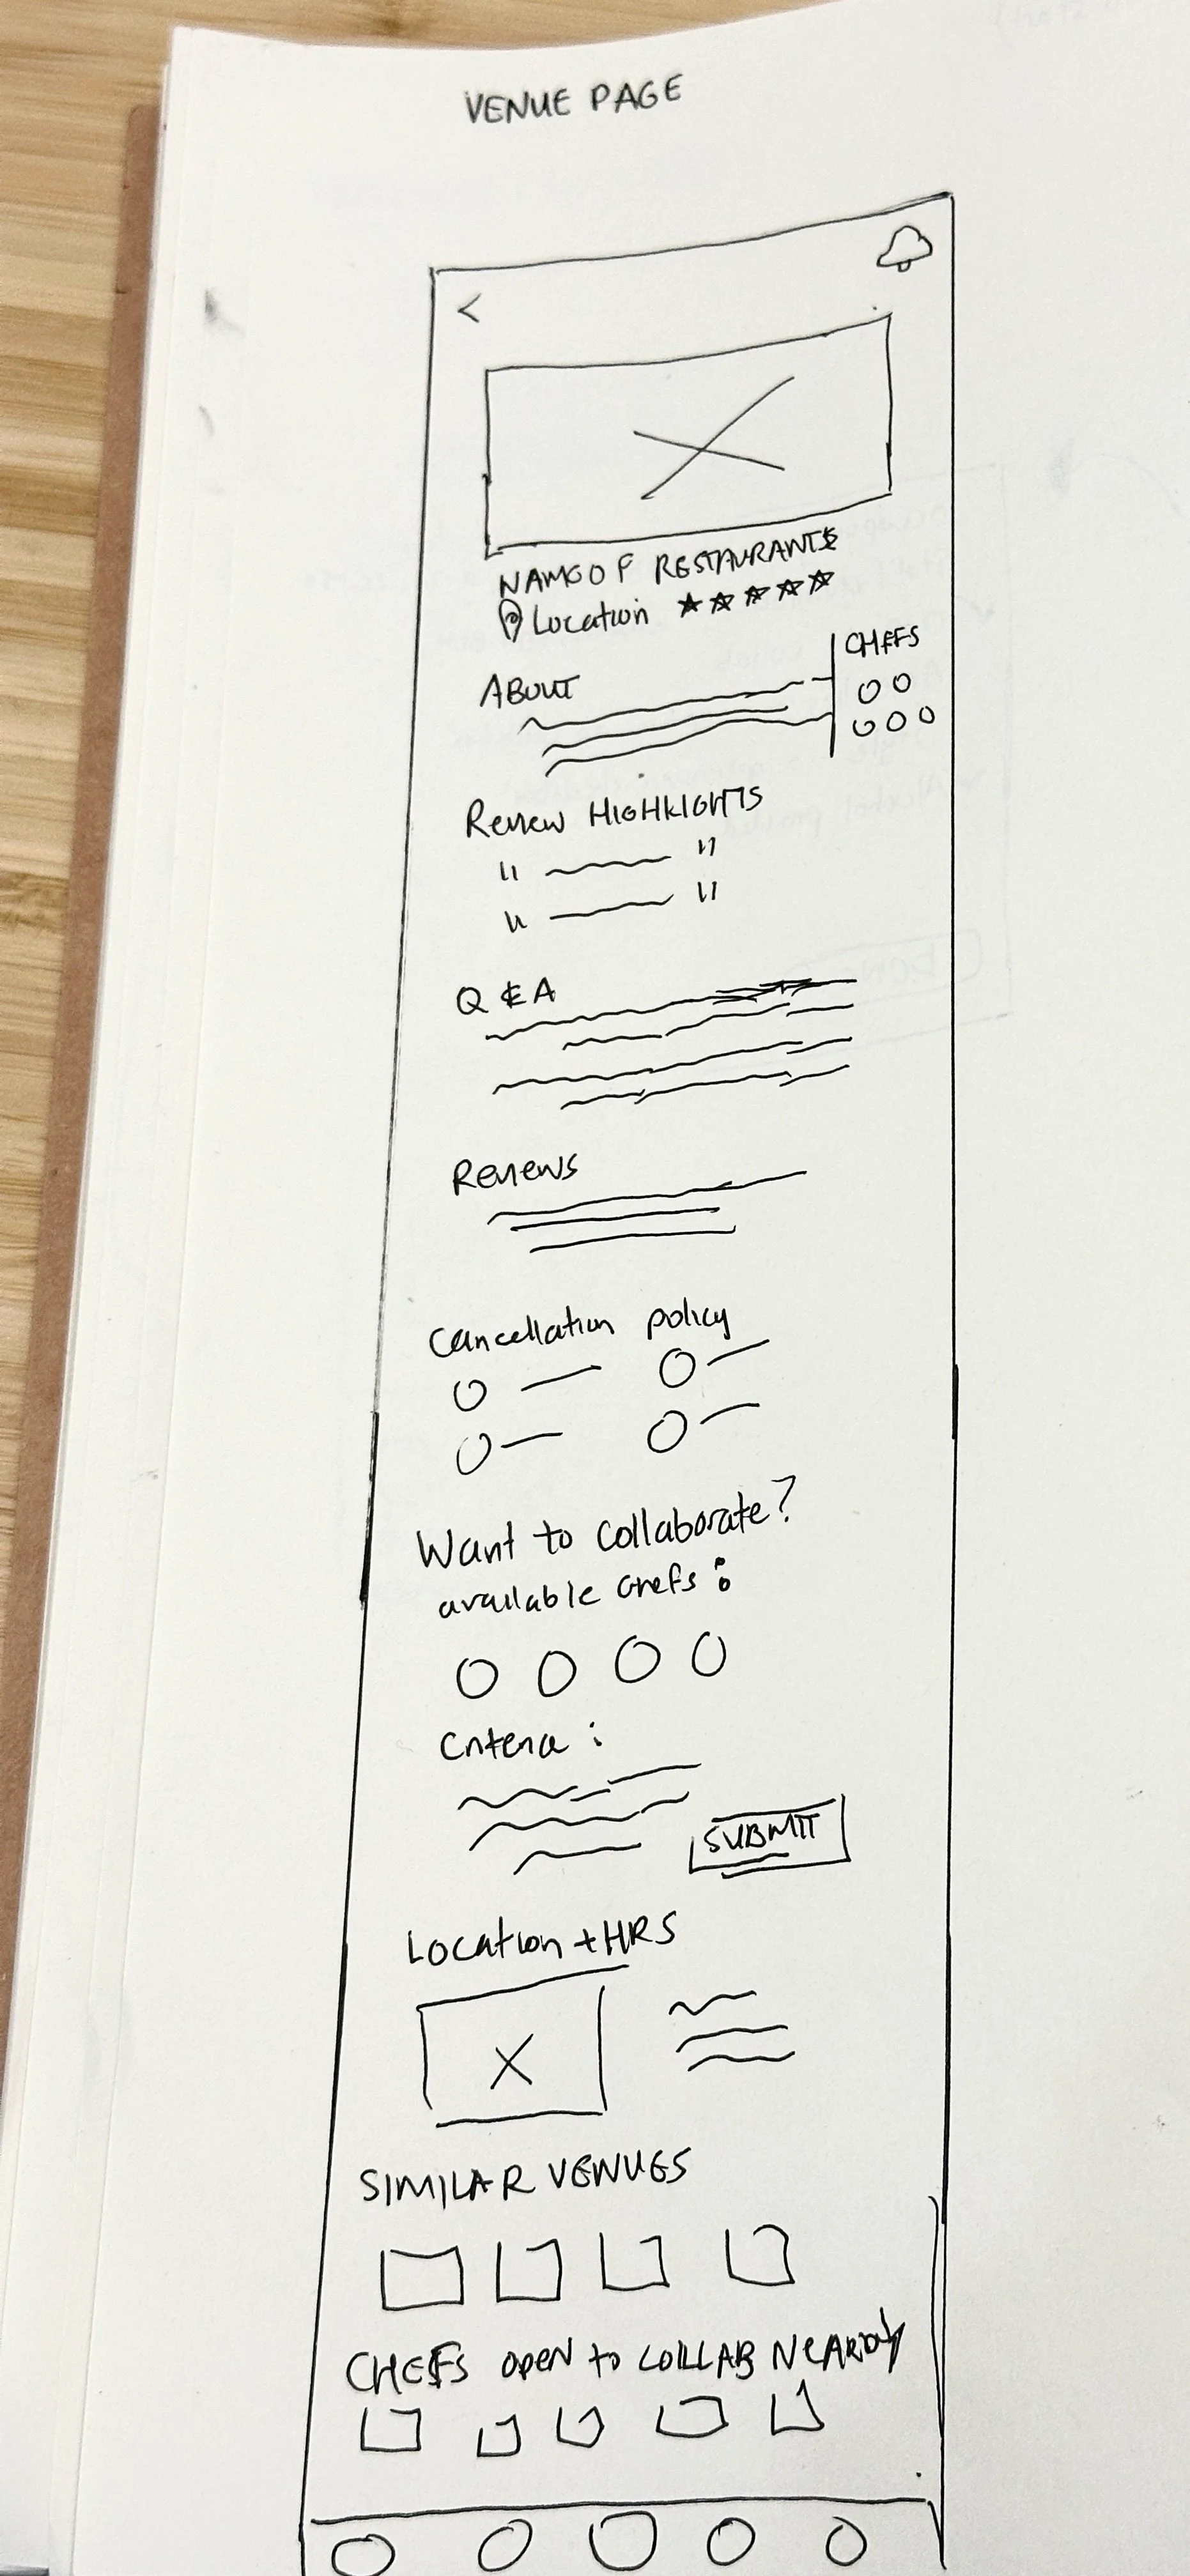 VENUE PAGE
<
NAME OF RESTAURANTS
Location ★★★★★
CHEFS
ABOUT
Review HIGHLIGHTS
" "
" "
Q & A
Reviews
Cancellation policy
Want to collaborate?
available chefs :
Criteria :
SUBMIT
Location + HRS
SIMILAR VENUES
CHEFS open to COLLAB NEARBY